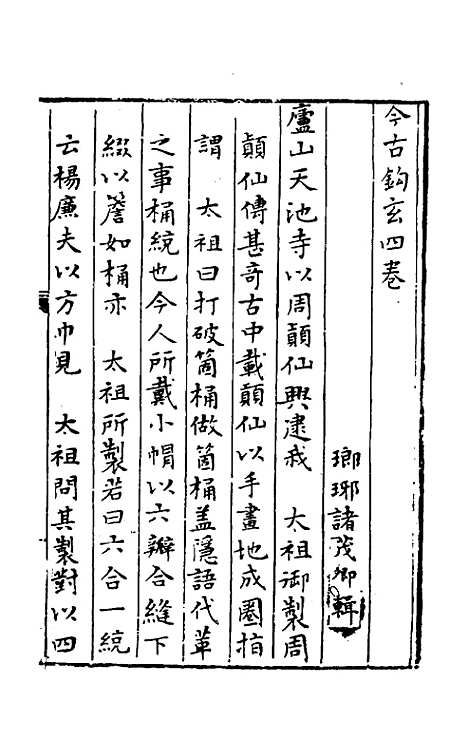 今古鈎玄四卷
瑯琊諸茂卿輯
廬山天池寺以周顛仙興逮我　太祖御製周
顛仙傳甚奇古中載顛仙以手畫地成圈指
謂　太祖曰打破箇桶做箇桶盖隱語代革
之事桶統也今人所戴小帽以六瓣合縫下
綴以簷如桶亦　太祖所製若曰六合一統
云楊廉夫以方巾見　太祖問其製對以四